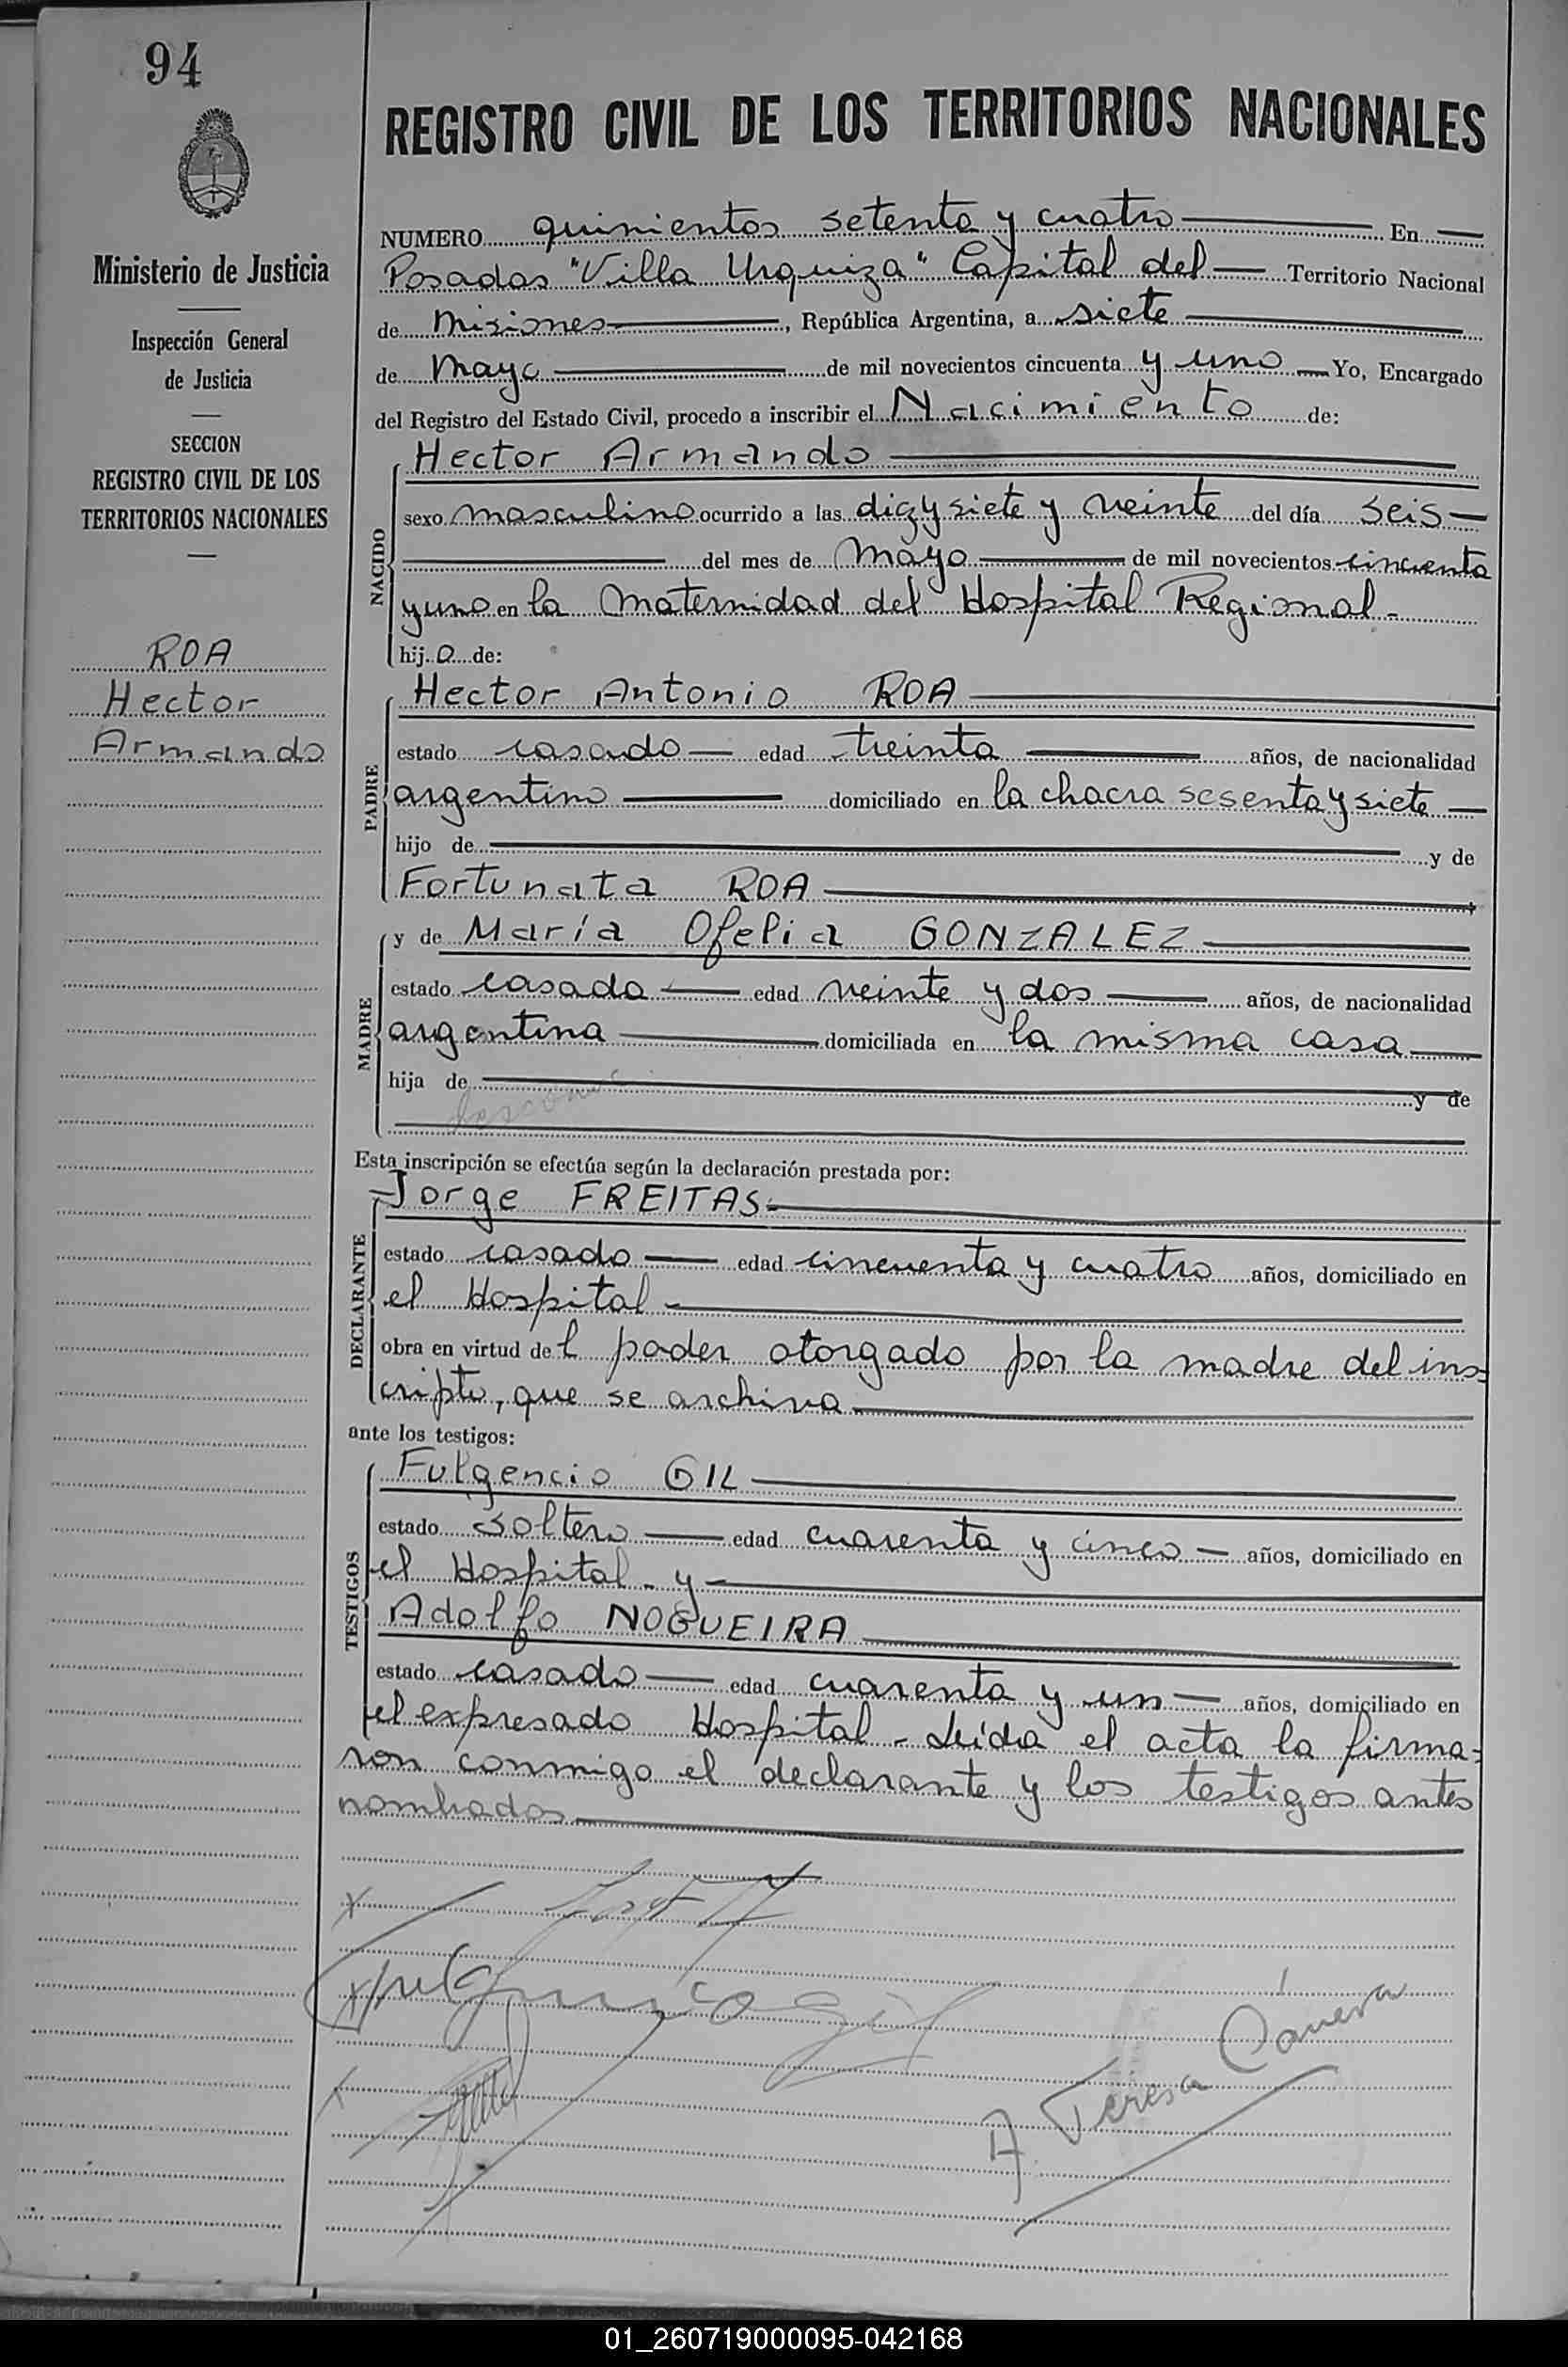 94
Ministerio de Justicia
Inspección General
de Justicia
SECCION
REGISTRO CIVIL DE LOS
TERRITORIOS NACIONALES
ROA
Hector
Armando
REGISTRO CIVIL DE LOS TERRITORIOS NACIONALES
NUMERO quinientos setenta y cuatro En
Posadas "Villa Urquiza" Capital del Territorio Nacional
de Misiones, República Argentina, a siete
de Mayo de mil novecientos cincuenta y uno Yo, Encargado
del Registro del Estado Civil, procedo a inscribir el Nacimiento de:
NACIDO
Hector Armando
sexo masculino ocurrido a las diezysiete y veinte del día seis
del mes de Mayo de mil novecientos cincuenta
y uno en la Maternidad del Hospital Regional-
hijo de:
PADRE
Hector Antonio ROA
estado casado edad treinta años, de nacionalidad
argentino domiciliado en la chacra sesenta y siete
hijo de y de
Fortunata ROA
MADRE
y de María Ofelia GONZALEZ
estado casada edad veinte y dos años, de nacionalidad
argentina domiciliada en la misma casa
hija de y de
Esta inscripción se efectúa según la declaración prestada por:
DECLARANTE
Jorge FREITAS-
estado casado edad cincuenta y cuatro años, domiciliado en
el Hospital-
obra en virtud del poder otorgado por la madre del ins=
cripto, que se archiva
ante los testigos:
TESTIGOS
Fulgencio GIL
estado soltero edad cuarenta y cinco años, domiciliado en
el Hospital- y
Adolfo NOGUEIRA
estado casado edad cuarenta y un años, domiciliado en
el expresado Hospital- Leída el acta la firma=
ron conmigo el declarante y los testigos antes
nombrados
Fulgencio Gil
A. Teresa Cánera
01_260719000095-042168